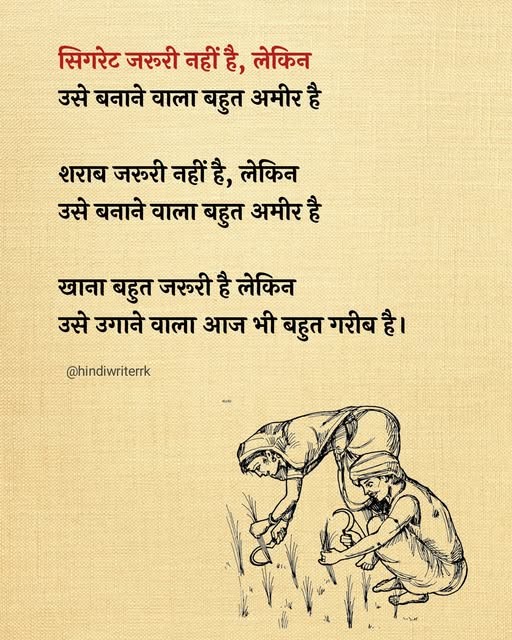 सिगरेट जरूरी नहीं है, लेकिन
उसे बनाने वाला बहुत अमीर है
शराब जरूरी नहीं है, लेकिन
उसे बनाने वाला बहुत अमीर है
खाना बहुत जरूरी है लेकिन
उसे उगाने वाला आज भी बहुत गरीब है।
@hindiwriterrk